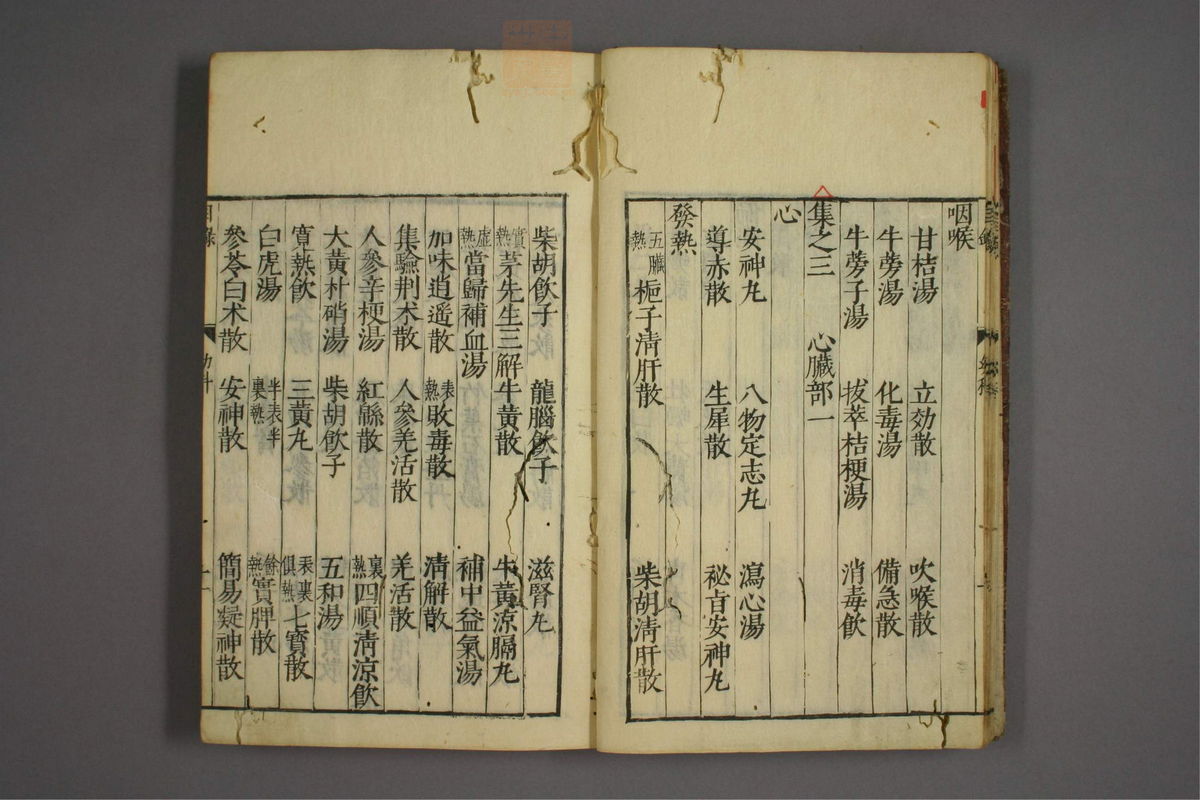 咽喉
甘桔湯 立効散 吹喉散
牛蒡湯 化毒湯 備急散
牛蒡子湯 拔萃桔梗湯 消毒飲
集之三 心臟部一
心
安神丸 八物定志丸 瀉心湯
導赤散 生犀散 祕旨安神丸
發熱
五臟熱 梔子淸肝散 柴胡淸肝散
柴胡飲子 龍腦飲子 滋腎丸
實熱 茅先生三解牛黃散 牛黃涼膈丸
虛熱 當歸補血湯 補中益氣湯
加味逍遥散 表熱 敗毒散 淸解散
集驗荆术散 人參羌活散 羌活散
人參辛梗湯 紅緜散 裏熱 四順淸涼飲
大黃朴硝湯 柴胡飲子 五和湯
實熱飲 三黃丸 表裏俱熱 七寶散
白虎湯 半表半裏熱 餘熱 實脾散
參苓白术散 安神散 簡易凝神散
目錄